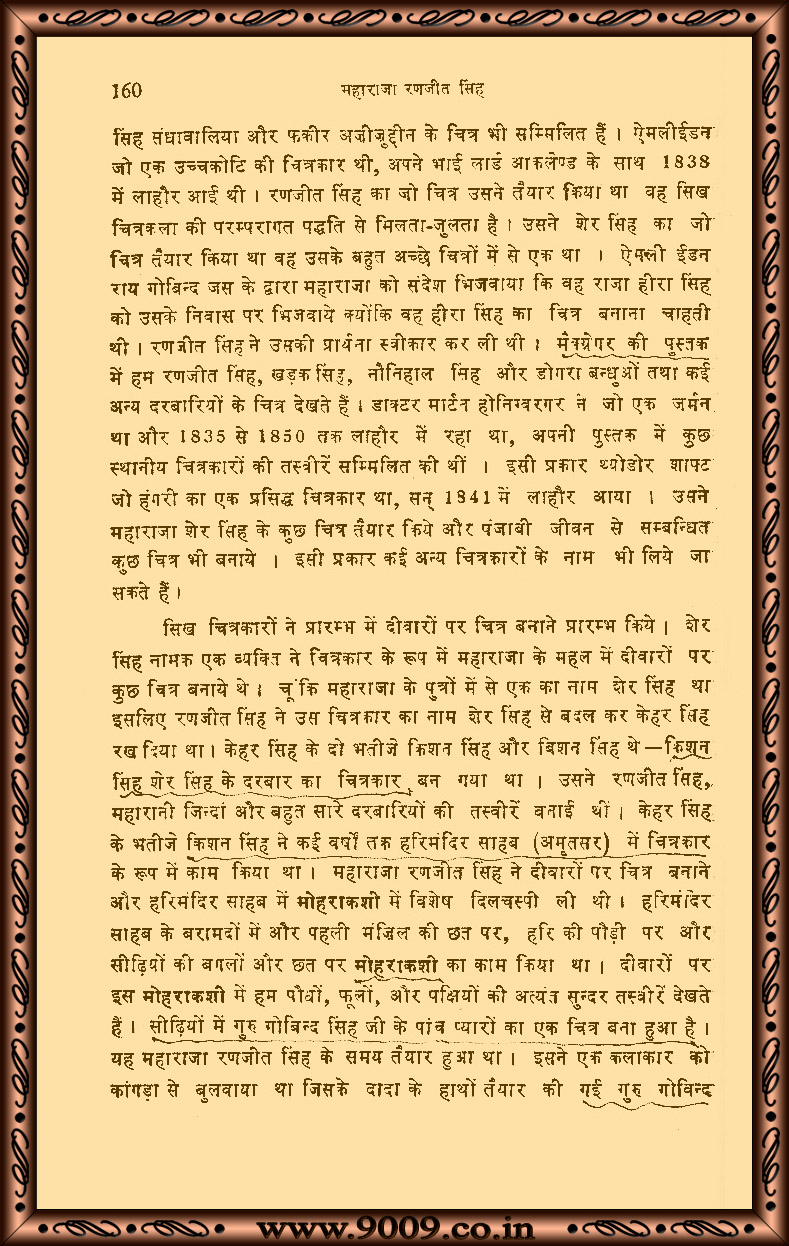 160 महाराजा रणजीत सिंह
सिंह संधावालिया और फकीर अजीजुद्दीन के चित्र भी सम्मिलित हैं । ऐमलीईडन
जो एक उच्चकोटि की चित्रकार थी, अपने भाई लार्ड आकलेण्ड के साथ 1838
में लाहौर आई थी । रणजीत सिंह का जो चित्र उसने तैयार किया था वह सिख
चित्रकला की परम्परागत पद्धति से मिलता-जुलता है । उसने शेर सिंह का जो
चित्र तैयार किया था वह उसके बहुत अच्छे चित्रों में से एक था । ऐमली ईडन
राय गोबिन्द जस के द्वारा महाराजा को संदेश भिजवाया कि वह राजा हीरा सिंह
को उसके निवास पर भिजवाये क्योंकि वह हीरा सिंह का चित्र बनाना चाहती
थी । रणजीत सिंह ने उसकी प्रार्थना स्वीकार कर ली थी । मैक्ग्रेगर की पुस्तक
में हम रणजीत सिंह, खड़क सिंह, नौनिहाल सिंह और डोगरा बन्धुओं तथा कई
अन्य दरबारियों के चित्र देखते हैं । डाक्टर मार्टन होनिग्बरगर ने जो एक जर्मन
था और 1835 से 1850 तक लाहौर में रहा था, अपनी पुस्तक में कुछ
स्थानीय चित्रकारों की तस्वीरें सम्मिलित की थीं । इसी प्रकार थ्योडोर शाफ्ट
जो हंगरी का एक प्रसिद्ध चित्रकार था, सन् 1841 में लाहौर आया । उसने
महाराजा शेर सिंह के कुछ चित्र तैयार किये और पंजाबी जीवन से सम्बन्धित
कुछ चित्र भी बनाये । इसी प्रकार कई अन्य चित्रकारों के नाम भी लिये जा
सकते हैं ।
सिख चित्रकारों ने प्रारम्भ में दीवारों पर चित्र बनाने प्रारम्भ किये । शेर
सिंह नामक एक व्यक्ति ने चित्रकार के रूप में महाराजा के महल में दीवारों पर
कुछ चित्र बनाये थे । चूंकि महाराजा के पुत्रों में से एक का नाम शेर सिंह था
इसलिए रणजीत सिंह ने उस चित्रकार का नाम शेर सिंह से बदल कर केहर सिंह
रख दिया था । केहर सिंह के दो भतीजे किशन सिंह और बिशन सिंह थे—किशन
सिंह शेर सिंह के दरबार का चित्रकार बन गया था । उसने रणजीत सिंह,
महारानी जिन्दां और बहुत सारे दरबारियों की तस्वीरें बनाई थीं । केहर सिंह
के भतीजे किशन सिंह ने कई वर्षों तक हरिमंदिर साहब (अमृतसर) में चित्रकार
के रूप में काम किया था । महाराजा रणजीत सिंह ने दीवारों पर चित्र बनाने
और हरिमंदिर साहब में मोहराकशी में विशेष दिलचस्पी ली थी । हरिमंदिर
साहब के बरामदों में और पहली मंज़िल की छत पर, हरि की पौड़ी पर और
सीढ़ियों की बगलों और छत पर मोहराकशी का काम किया था । दीवारों पर
इस मोहराकशी में हम पौधों, फूलों, और पक्षियों की अत्यंत सुन्दर तस्वीरें देखते
हैं । सीढ़ियों में गुरु गोबिन्द सिंह जी के पांच प्यारों का एक चित्र बना हुआ है ।
यह महाराजा रणजीत सिंह के समय तैयार हुआ था । इसने एक कलाकार को
कांगड़ा से बुलवाया था जिसके दादा के हाथों तैयार की गई गुरु गोविन्द
www.9009.co.in